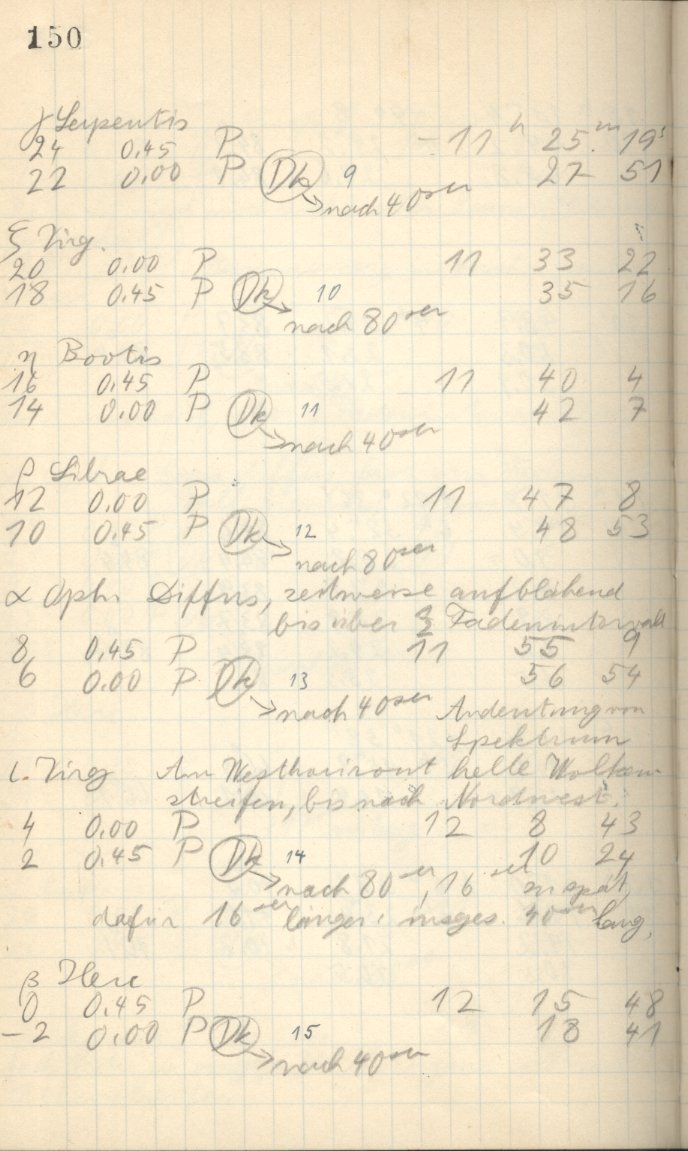 150
γ Serpentis
24 0.45 P – 11 h 25 m 19 s
22 0.00 P Dk 9 27 51
→ nach 40 sec
ξ Virg.
20 0.00 P 11 33 22
18 0.45 P Dk 10 35 16
→ nach 80 sec
η Bootis
16 0.45 P 11 40 4
14 0.00 P Dk 11 42 7
→ nach 40 sec
β Librae
12 0.00 P 11 47 8
10 0.45 P Dk 12 48 53
→ nach 80 sec
α Oph. Diffus, zeitweise aufblähend
bis über Fadenintervall
8 0.45 P 11 55 9
6 0.00 P Dk 13 56 54
→ nach 40 sec Andeutung von
Spektrum
ι. Virg Am Westhorizont helle Wolken-
streifen, bis nach Nordwest.
4 0.00 P 12 8 43
2 0.45 P Dk 14 10 24
→ nach 80 sec, 16 sec zu spät,
dafür 16 sec länger, insges. 40 sec lang.
β Herc
0 0.45 P 12 15 48
–2 0.00 P Dk 15 18 41
→ nach 40 sec